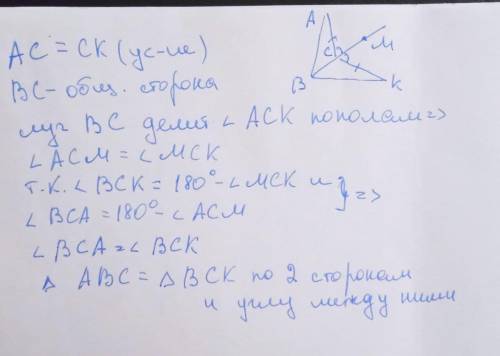 AC = CK (ус-ие)
BC - общ. сторона
луч BC делит ∠ ACK пополам =>
∠ ACM = ∠ MCK
т.к. ∠ BCK = 180° - ∠ MCK и
∠ BCA = 180° - ∠ ACM } =>
∠ BCA = ∠ BCK
△ ABC = △ BCK по 2 сторонам
и углу между ними
A
C
M
B
K